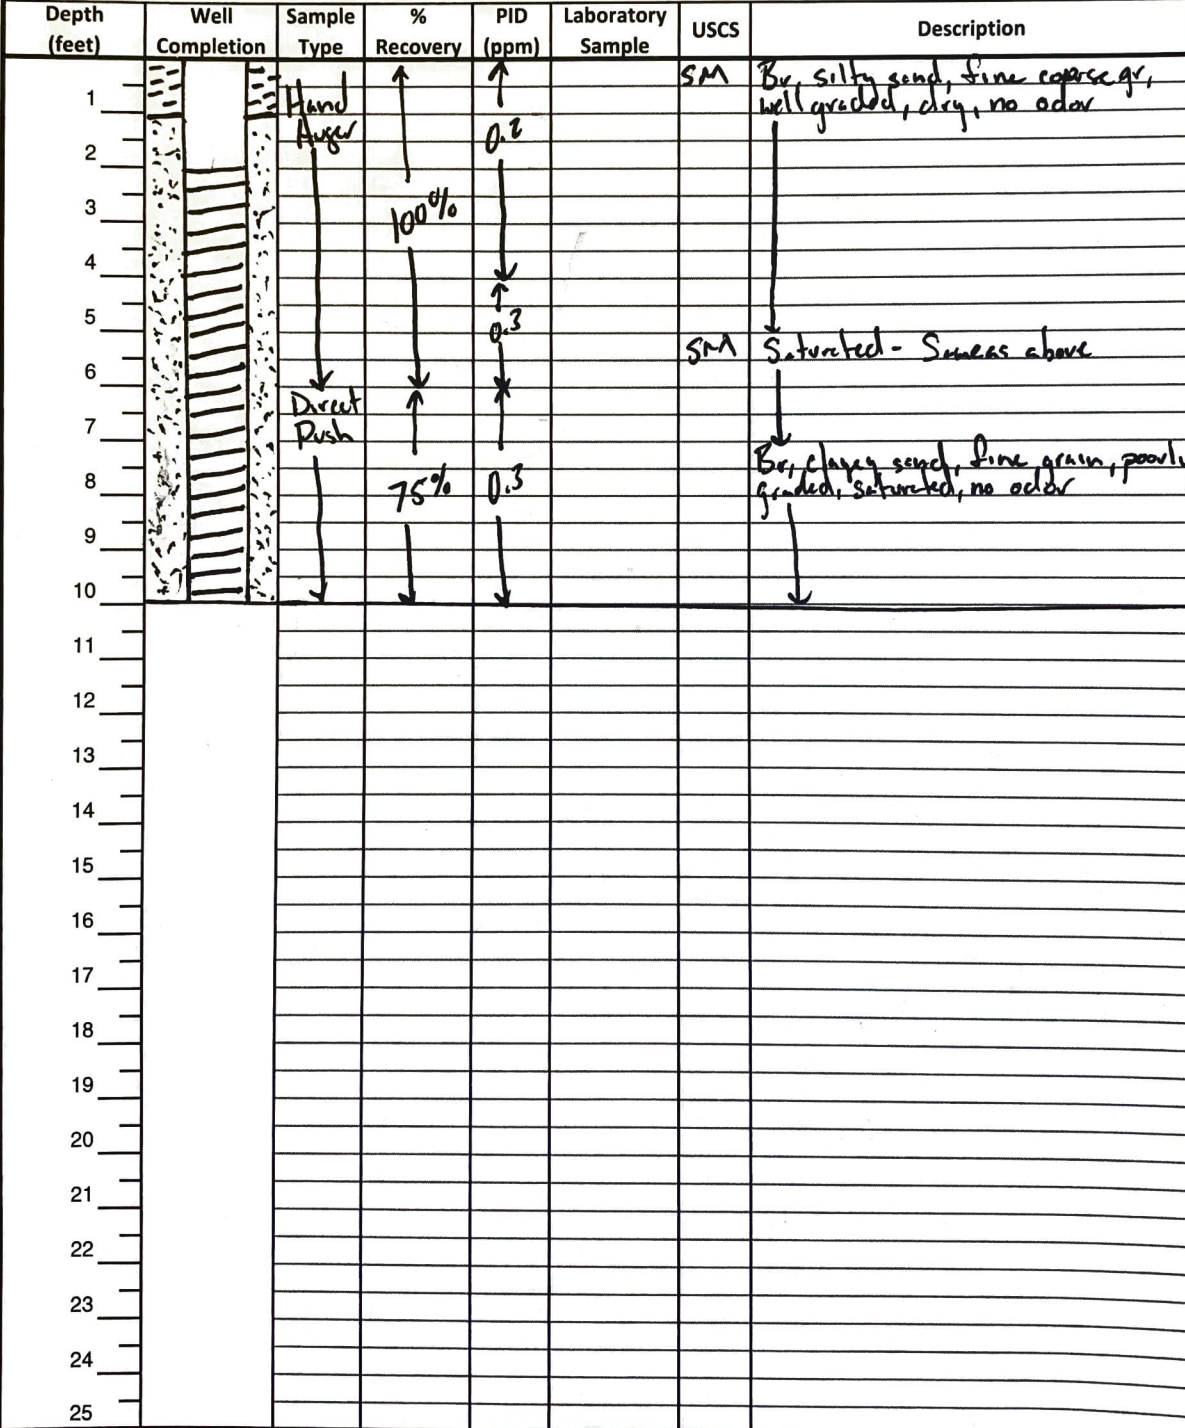 Depth (feet) Well Completion Sample Type % Recovery PID (ppm) Laboratory Sample USCS Description
SM Br, silty sand, fine coarse gr,
1 Hand well graded, dry, no odor
Auger 0.2
2
3 100%
4
5 0.3
SM Saturated - Same as above
6
Direct
7 Push
Br, clayey sand, fine grain, poorly
8 75% 0.3 graded, saturated, no odor
9
10
11
12
13
14
15
16
17
18
19
20
21
22
23
24
25